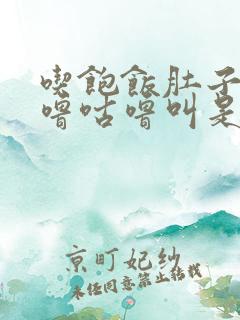 喫飽飯肚子
嚕咕嚕叫是
京町妃紗
未经同意禁止转载